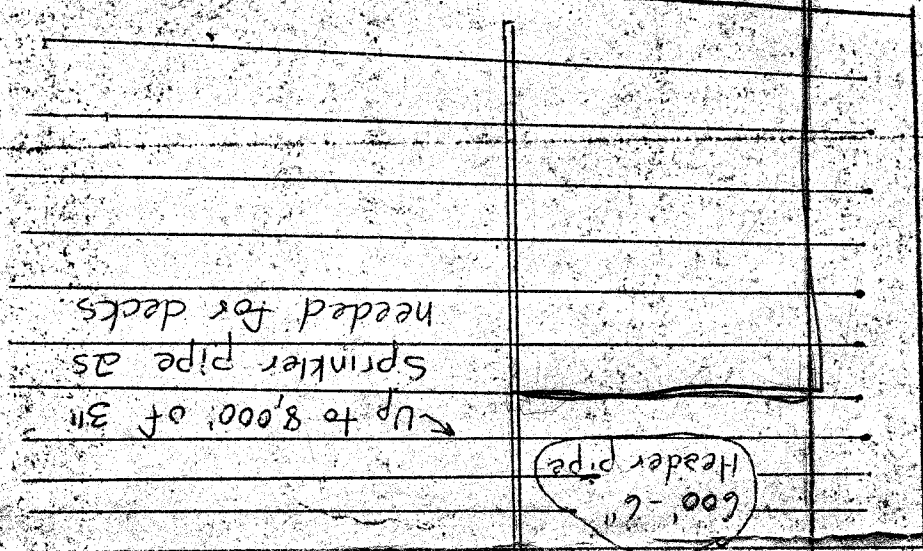 600' - 6"
Header pipe
Up to 8,000' of 3"
Sprinkler pipe as
needed for decks